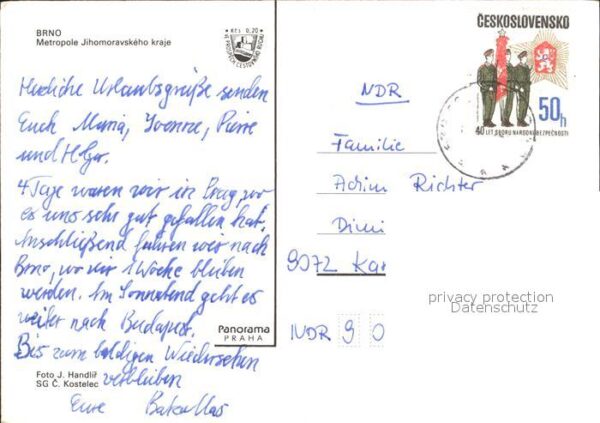 BRNO
Metropole Jihomoravského kraje
Kčs 0,20
VE PROSPĚCH ČESTOVNÍHO RUCHU
Herzliche Urlaubsgrüße senden
Euch Maria, Yvonne, Pierre
und Holger.
4 Tage waren wir in Prag, wo
es uns sehr gut gefallen hat.
Anschließend fuhren wir nach
Brno, wo wir 1 Woche bleiben
werden. Am Sonnabend geht es
weiter nach Budapest.
Bis zum baldigen Wiedersehen
verbleiben
Eure
Foto J. Handlíř
SG Č. Kostelec
Panorama
PRAHA
ČESKOSLOVENSKO
50h
40 LET SBORU NÁRODNÍ BEZPEČNOSTI
NDR
Familie
Richter
9072 Kar
privacy protection
Datenschutz
NDR 9 0